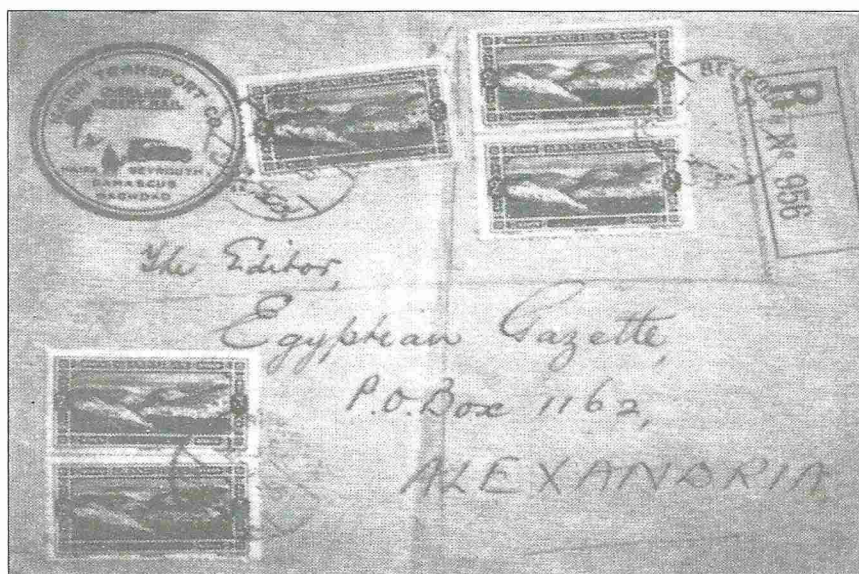 NAIRN TRANSPORT CO.
OVERLAND
DESERT MAIL
HAIFA BEYROUTH,
DAMASCUS
BAGHDAD
BEYROUTH
R
No 956
The Editor,
Egyptian Gazette,
P.O. Box 1162,
ALEXANDRIA